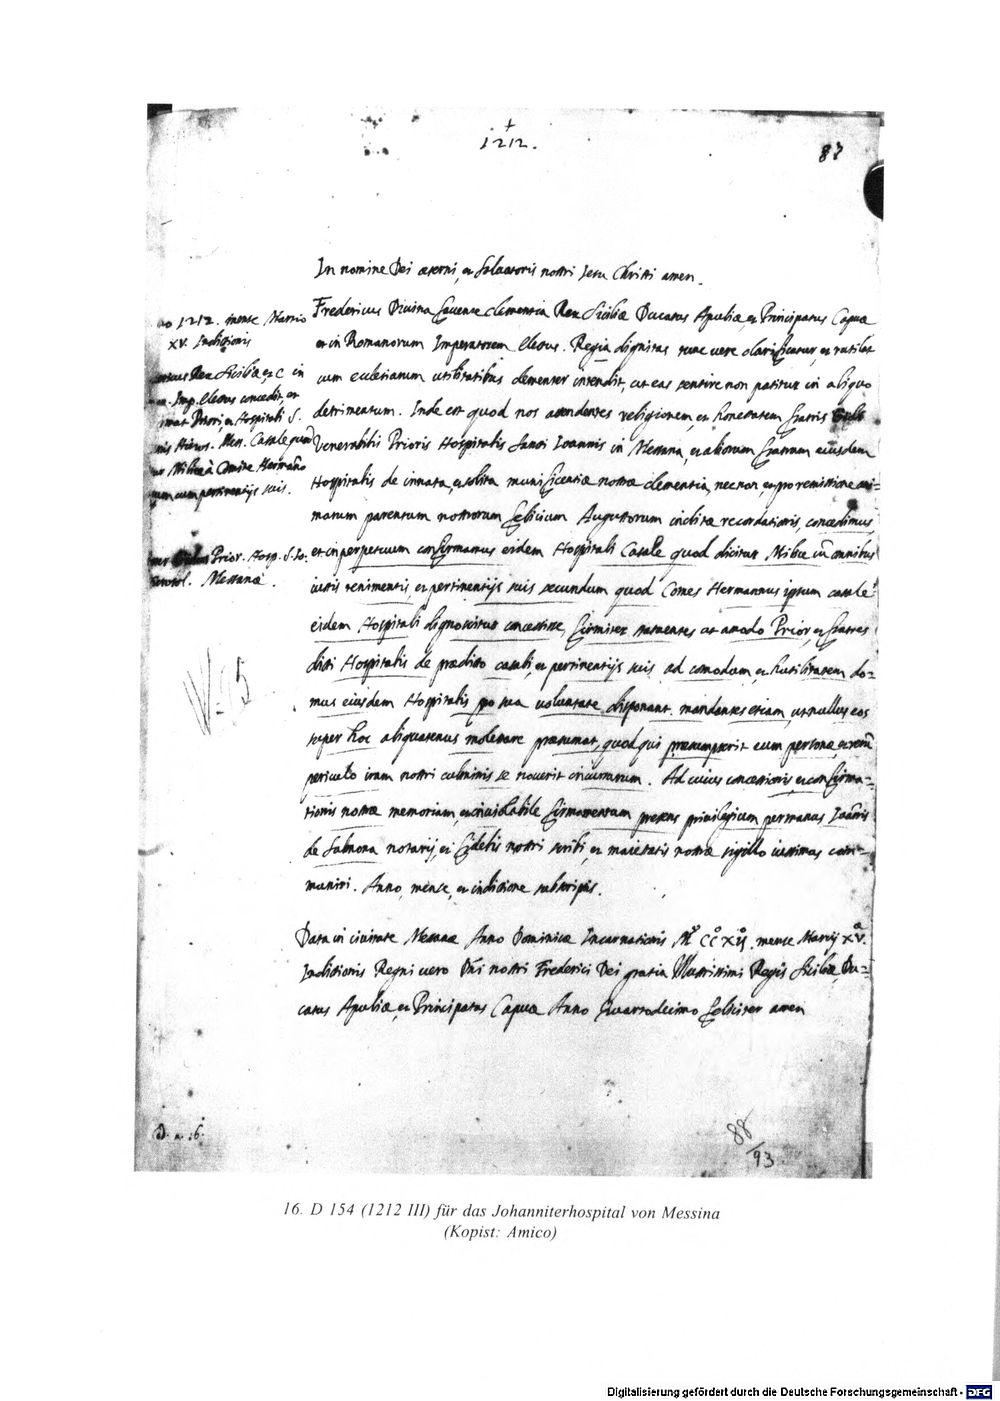 +
1212.
87
In nomine Dei æterni, et Salvatoris nostri Jesu Christi amen.
Fredericus Divina favente clementia Rex Siciliæ Ducatus Apuliæ et Principatus Capuæ
et in Romanorum Imperatorem electus. Regia dignitas tunc vere clarificatur, et rutilat
cum ecclesiarum utilitatibus clementer intendit, ut eas sentire non patitur in aliquo
detrimentum. Inde est quod nos attendentes religionem, et honestatem fratris
Venerabilis Prioris Hospitalis Sancti Ioannis in Messana, et aliorum fratrum eiusdem
Hospitalis de innata, et solita munificentiæ nostræ clementia, nec non, et pro remissione ani=
marum parentum nostrorum felicium Augustorum inclitæ recordationis, concedimus,
et in perpetuum confirmamus eidem Hospitali Casale quod dicitur Milice cũ omnibus
iustis tenimentis, et pertinentijs suis secundum quod Comes Hermannus ipsum casale
eidem Hospitali dignoscitur concessisse, firmiter statuentes ut amodo Prior, et fratres
dicti Hospitalis de prædicto casali, et pertinentijs suis ad comodum, et hutilitatem do=
mus eiusdem Hospitalis pro sua voluntate disponant. mandantes etiam, ut nullus eos
super hoc aliquatenus molestare præsumat, quod qui præsumpserit eum personæ, et rerũ
periculo iram nostri culminis se noverit incursurum. Ad cuius concessionis, et confirma=
tionis nostræ memoriam, et inviolabile firmamentum presens privilegium per manus Ioãnis
de Sulmona notarij, et fidelis nostri scribi, et maiestatis nostræ sigillo iussimus com=
muniri. Anno, mense, et indictione subscriptis.
Data in civitate Messanæ Anno Dominicæ Incarnationis Mº CCº XIJº mense Martij XVª
Indictionis Regni vero Dñi nostri Frederici Dei gratia Illustrissimi Regis Siciliæ, Du=
catus Apuliæ, et Principatus Capuæ Anno Quartodecimo feliciter amen
1212. mense Martio
XV. Indictionis
Rex Siciliæ, etc in
Imp. electus concedit, et
Priori, et Hospitali S.
Mess. Casale quod
Comite Hermãno
cum pertinentijs suis.
Prior. Hosp. S. Io:
Messanæ.
88/93
16. D 154 (1212 III) für das Johanniterhospital von Messina
(Kopist: Amico)
Digitalisierung gefördert durch die Deutsche Forschungsgemeinschaft - DFG